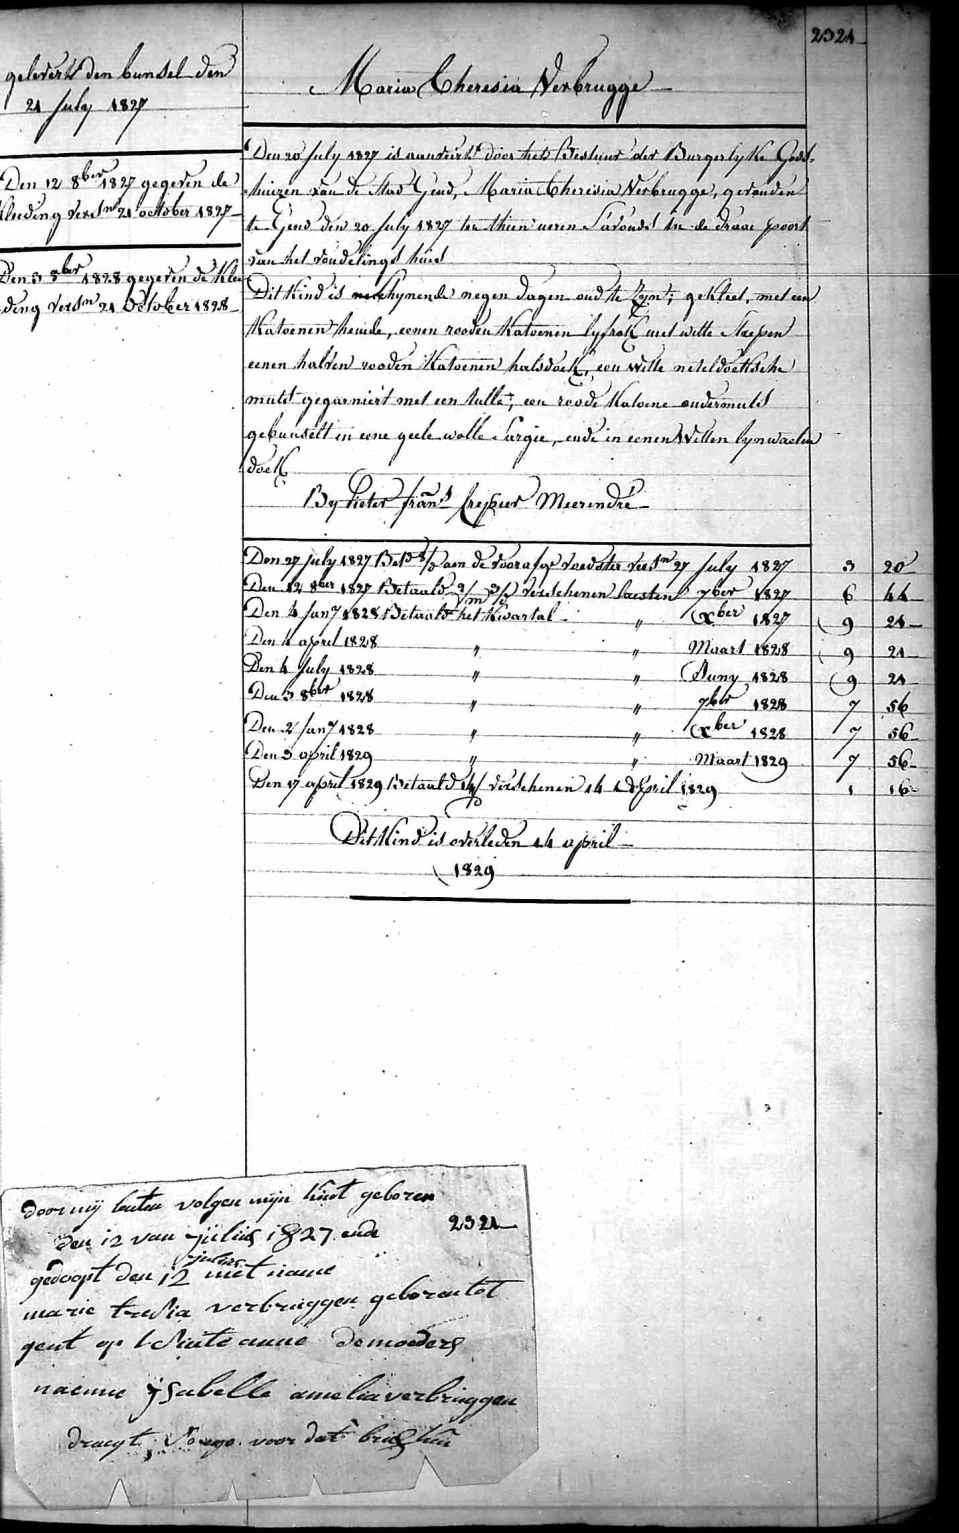 2321
gelevert den bunsel den
21 July 1827
Maria Theresia Verbrugge
Den 12 8ber 1827 gegeven de
kleeding versn 21 october 1827
Den 3 8ber 1828 gegeven de klee
ding versn 21 October 1828
Den 20 July 1827 is aanveirt door het Bestuur der Burgerlyke Gods-
huizen van de Stad Gend, Maria Theresia Verbrugge, gevonden
te Gend den 20 July 1827 ten thien ueren s'avonds in de draai poort
van het vondelings huis
Dit kind is schynende negen dagen oud te zyn; gekleet, met een
katoenen hemde, eenen rooden katoenen lyfrok met witte streepen
eenen halven rooden katoenen halsdoek, een witte neteldoeksche
muts gegarniert met een tulle, een roode katoene ondermuts
gebunselt in eene geele wolle Sargie, ende in eenen witten lynwaeten
doek
By Pieter frans Crepeer Meerendré
Den 27 July 1827 Bet aen de voorafge voedster versn 27 July 1827 3 20
Den 12 8ber 1827 Betaald verschenen laesten 7ber 1827 6 44
Den 4 Jany 1828 Betaald het kwartal " Xber 1827 9 24
Den 4 april 1828 " " Maart 1828 9 24
Den 4 July 1828 " " Juny 1828 9 24
Den 3 8ber 1828 " " 7ber 1828 7 56
Den 2 Jany 1828 " " Xber 1828 7 56
Den 3 april 1829 " " Maart 1829 7 56
Den 17 april 1829 Betaald 14/ verschenen 14 April 1829 1 16
Dit Kind is overleden 14 april
1829
door mij laeten volgen mijn kint geboren
den 12 van julius 1827 ende 2321
julius
gedoopt den 12 met name
marie tresia verbruggen geboren tot
gent op sinte anne de moeders
naeme ysabelle amelia verbruggen
draegt voor dat briefken